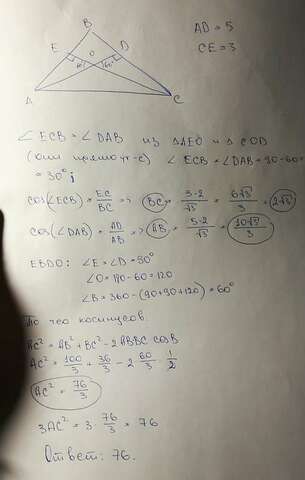 B
E
O
D
60°
60°
A
C
AD = 5
CE = 3
∠ ECB = ∠ DAB из ΔAEO и Δ COD
(они прямоуг-е) ∠ ECB = ∠DAB = 90-60=
= 30°;
cos(∠ECB) = EC/BC => BC = 3·2/√3 = 6√3/3 = 2√3
cos(∠DAB) = AD/AB => AB = 5·2/√3 = 10√3/3
EBDO: ∠E = ∠D = 90°
∠O = 180-60 = 120
∠B = 360 - (90+90+120) = 60°
По тео косинусов.
AC² = AB² + BC² - 2 AB BC cosB
AC² = 100/3 + 36/3 - 2 60/3 · 1/2
AC² = 76/3
3AC² = 3 · 76/3 = 76
Ответ: 76.